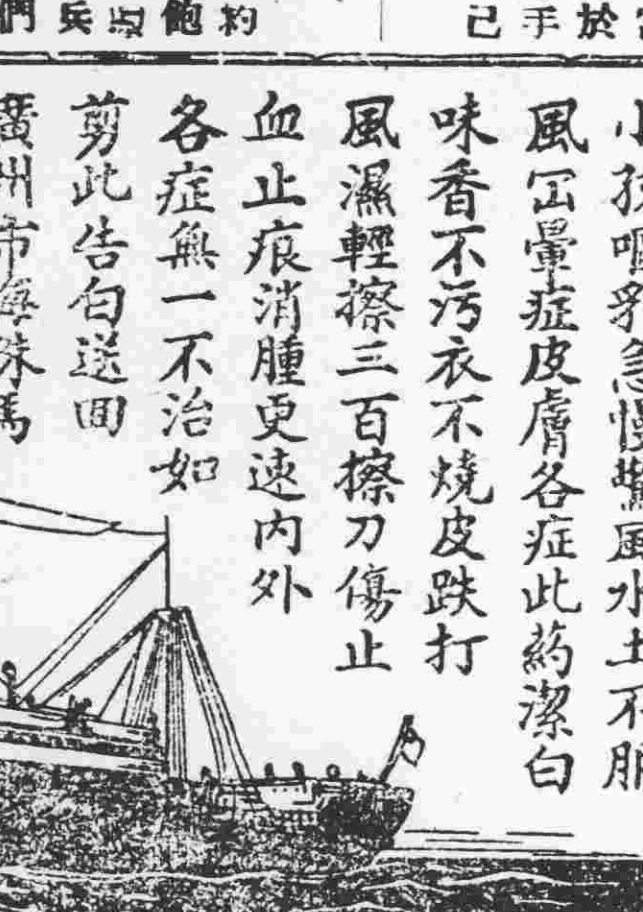 於手己
約飽兵們
小孩嘔乳急慢驚風水土不服
風冚暈症皮膚各症此葯潔白
味香不污衣不燒皮跌打
風濕輕擦三百擦刀傷止
血止痕消腫更速内外
各症無一不治如
剪此告白送回
廣州市海珠馬